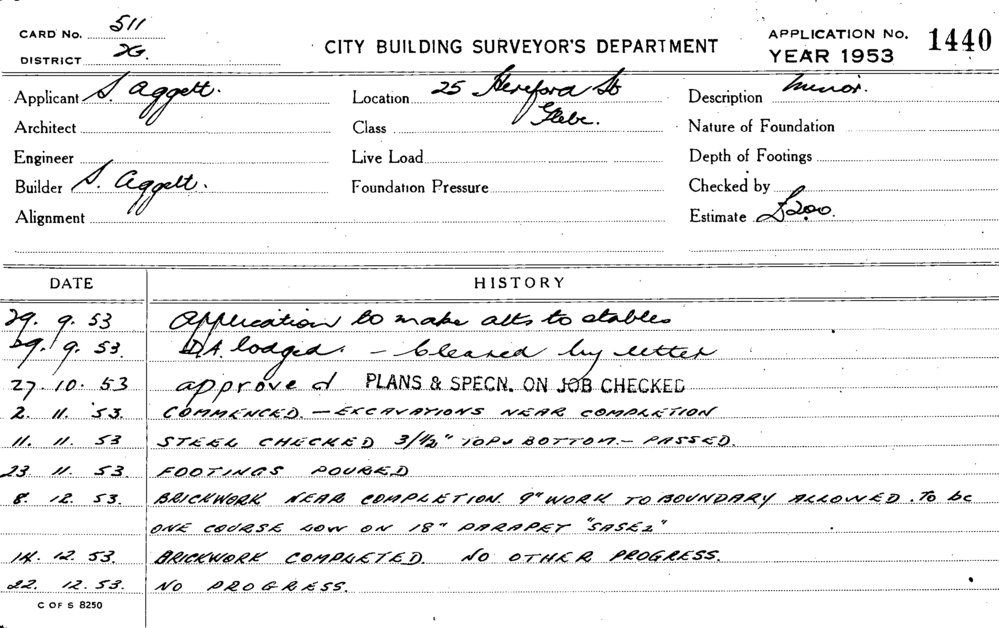 CARD No. 511
DISTRICT 2G.
CITY BUILDING SURVEYOR'S DEPARTMENT
APPLICATION No. 1440
YEAR 1953
Applicant S. Aggett. Location 25 Hereford St Glebe. Description Minor.
Architect Class Nature of Foundation
Engineer Live Load Depth of Footings
Builder S. Aggett. Foundation Pressure Checked by
Alignment Estimate £200.
DATE HISTORY
29. 9. 53 Application to make alts to stables
29. 9. 53. D.A. lodged. - Cleared by letter
27. 10. 53 approved PLANS & SPECN. ON JOB CHECKED
2. 11. 53. COMMENCED. - EXCAVATIONS NEAR COMPLETION
11. 11. 53 STEEL CHECKED 3/½" TOP & BOTTOM. - PASSED.
23. 11. 53. FOOTINGS POURED
8. 12. 53. BRICKWORK NEAR COMPLETION. 9" WORK TO BOUNDARY ALLOWED. To be
ONE COURSE LOW ON 18" PARAPET
14. 12. 53. BRICKWORK COMPLETED. NO OTHER PROGRESS.
22. 12. 53. NO PROGRESS.
C OF S 8250